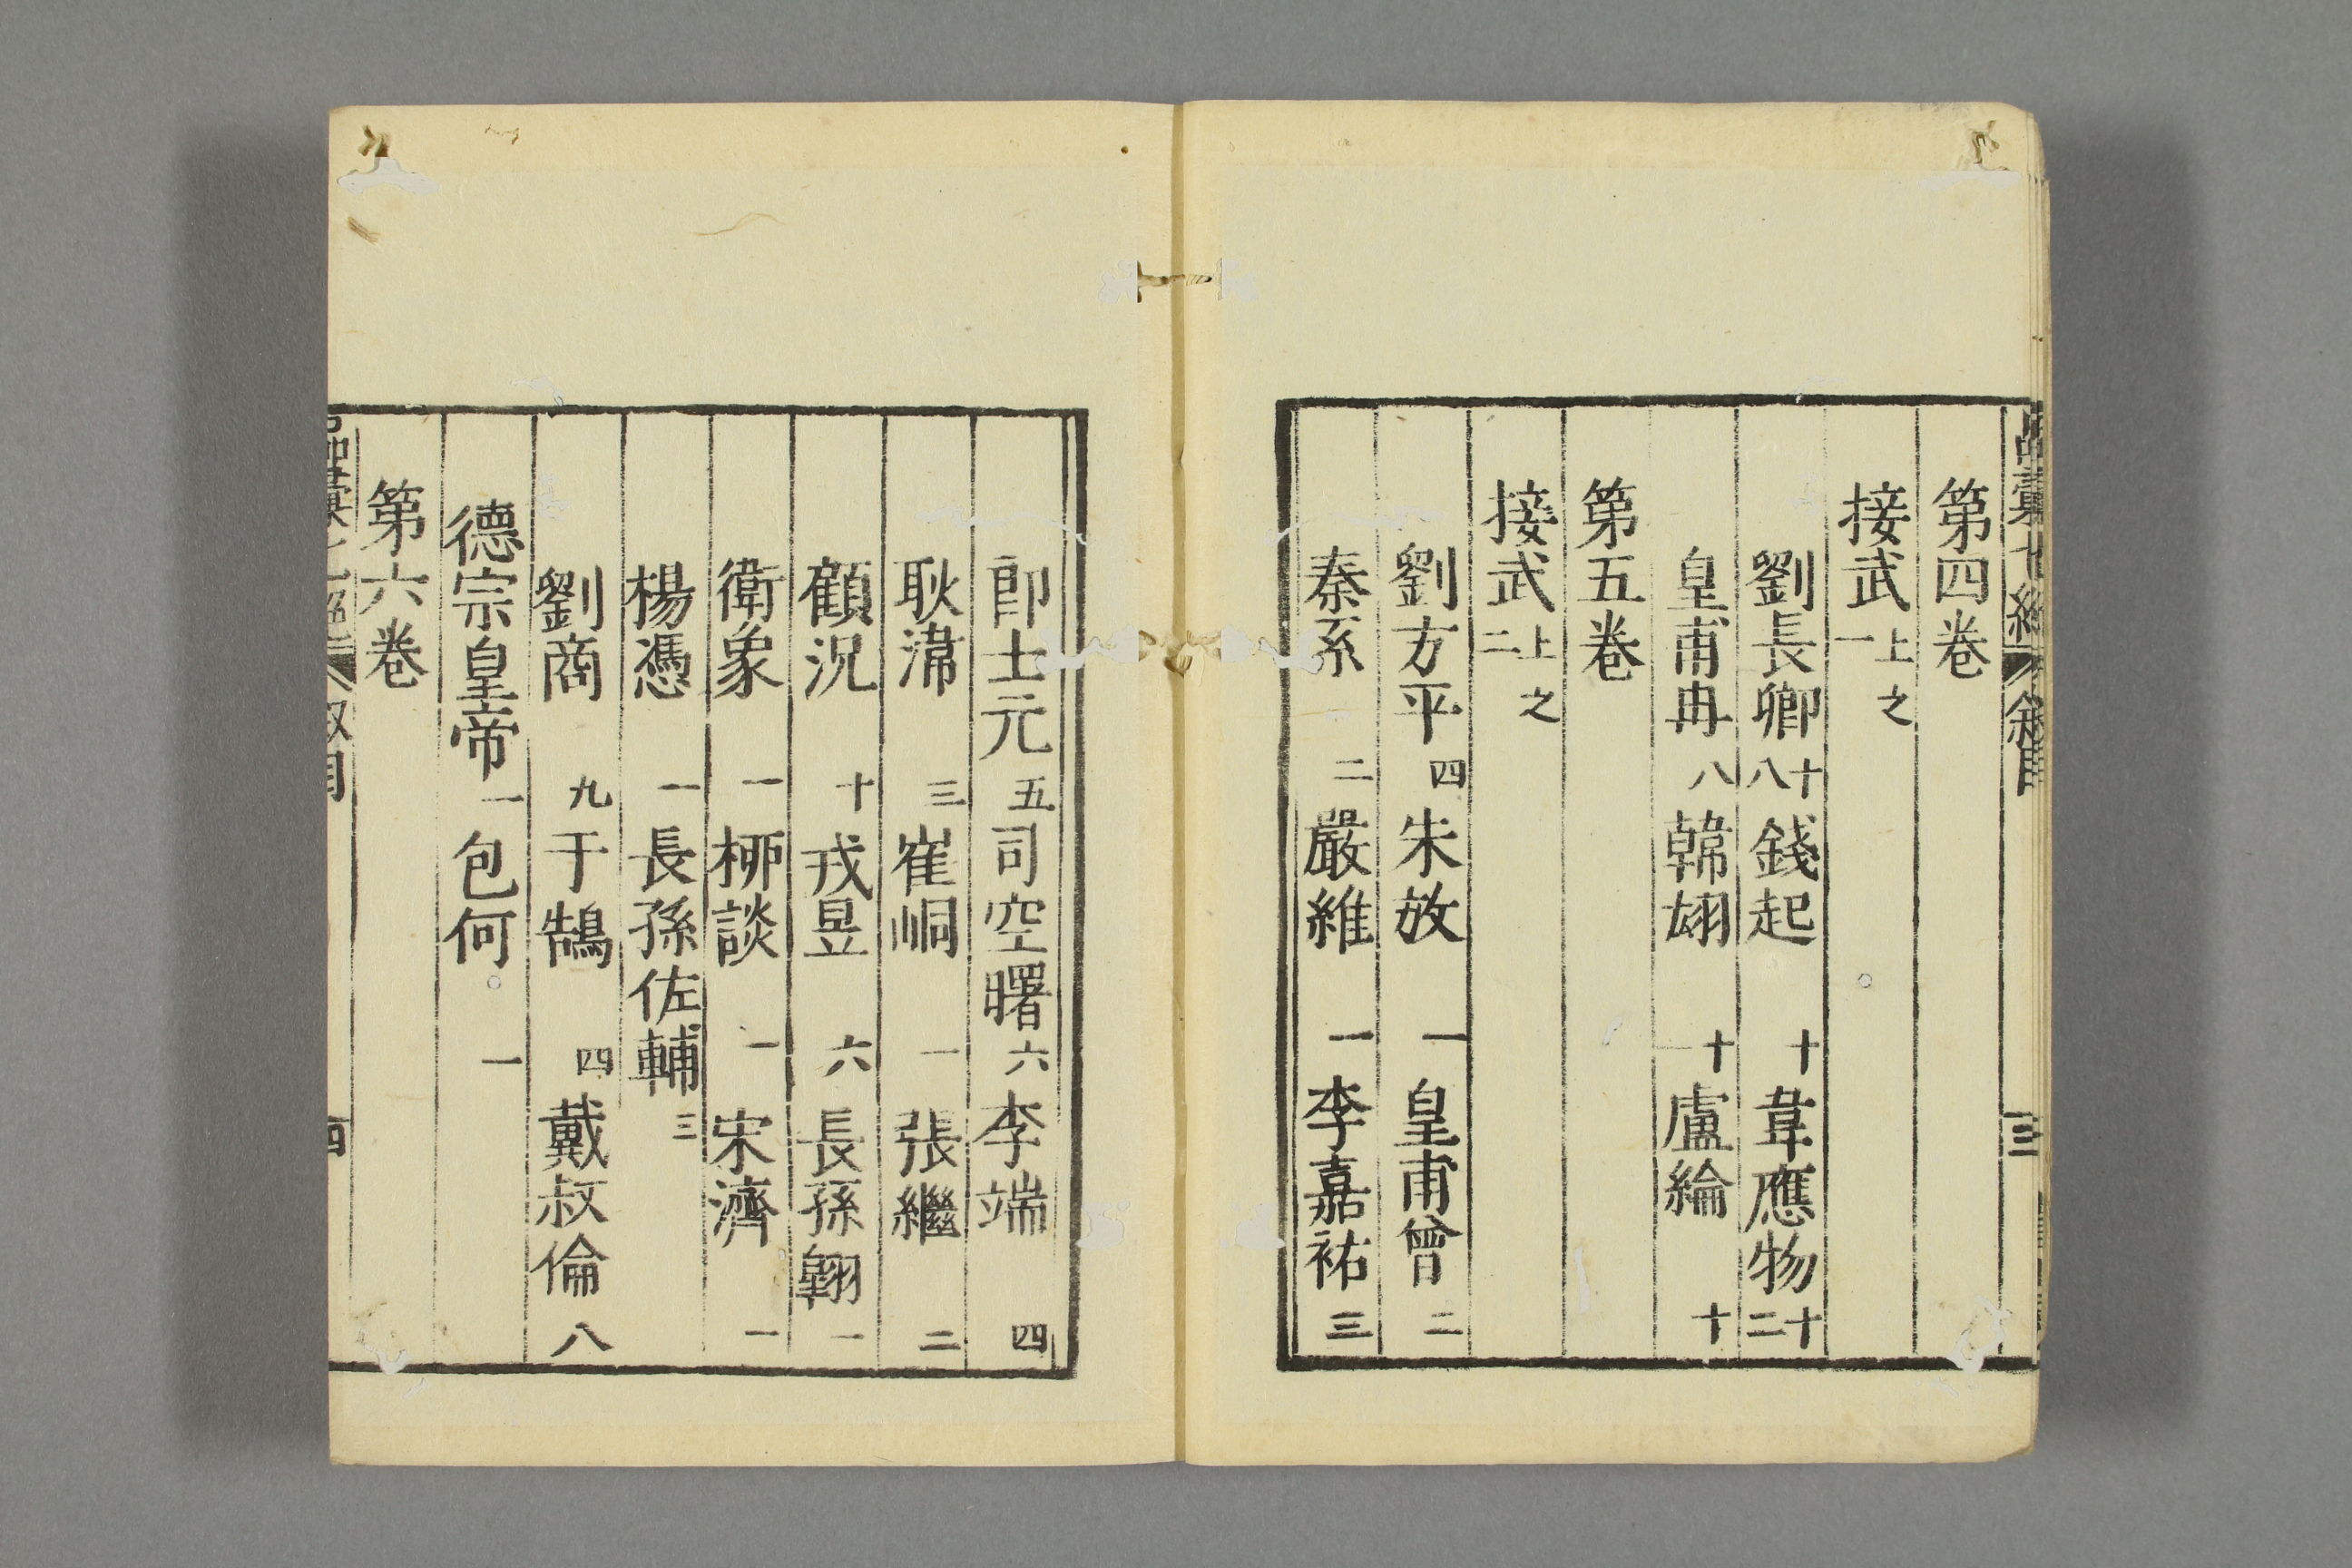 第四卷
接武上之一
劉長卿十八 錢起十 韋應物十二
皇甫冉八 韓翃十 盧綸十
第五卷
接武上之二
劉方平四 朱放一 皇甫曾二
秦系二 嚴維一 李嘉祐三
郎士元五 司空曙六 李端四
耿湋三 崔峒一 張繼二
顧況十 戎昱六 長孫翱一
衛象一 柳談一 宋濟一
楊憑一 長孫佐輔三
劉商九 于鵠四 戴叔倫八
德宗皇帝一 包何一
第六卷